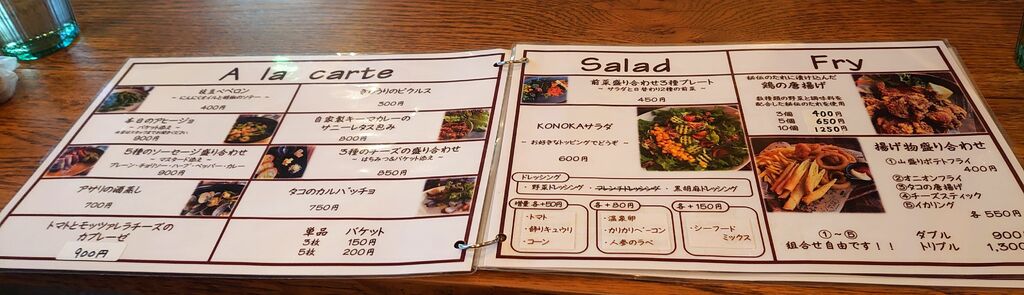 A la carte
枝豆ペペロン
～にんにくオイルと秘伝のソテー～
400円
きゅうりのピクルス
300円
本日のアヒージョ
～バケット添え～
800円
自家製キーマカレーの
サニーレタス包み
800円
5種のソーセージ盛り合わせ
～マスタード添え～
プレーン・チョリソー・ハーブ・ペッパー・カレー
900円
3種のチーズの盛り合わせ
～はちみつ&バケット添え～
850円
アサリの酒蒸し
700円
タコのカルパッチョ
750円
トマトとモッツァレラチーズの
カプレーゼ
900円
単品 バケット
3枚 150円
5枚 200円
Salad
前菜盛り合わせ3種プレート
～サラダと日替わり2種の前菜～
450円
KONOKAサラダ
～お好きなトッピングでどうぞ～
600円
ドレッシング
・野菜ドレッシング ・フレンチドレッシング ・黒胡麻ドレッシング
増量 各+50円
・トマト
・飾りキュウリ
・コーン
各+80円
・温泉卵
・カリカリベーコン
・人参のラペ
各+150円
・シーフード
ミックス
Fry
秘伝のたれに漬け込んだ
鶏の唐揚げ
数種類の野菜と調味料を
配合した秘伝のたれを使用
3個 400円
5個 650円
10個 1250円
揚げ物盛り合わせ
①山盛りポテトフライ
400円
②オニオンフライ
③タコの唐揚げ
④チーズスティック
⑤イカリング
各 550円
①～⑤
組合せ自由です！！
ダブル 900
トリプル 1,300